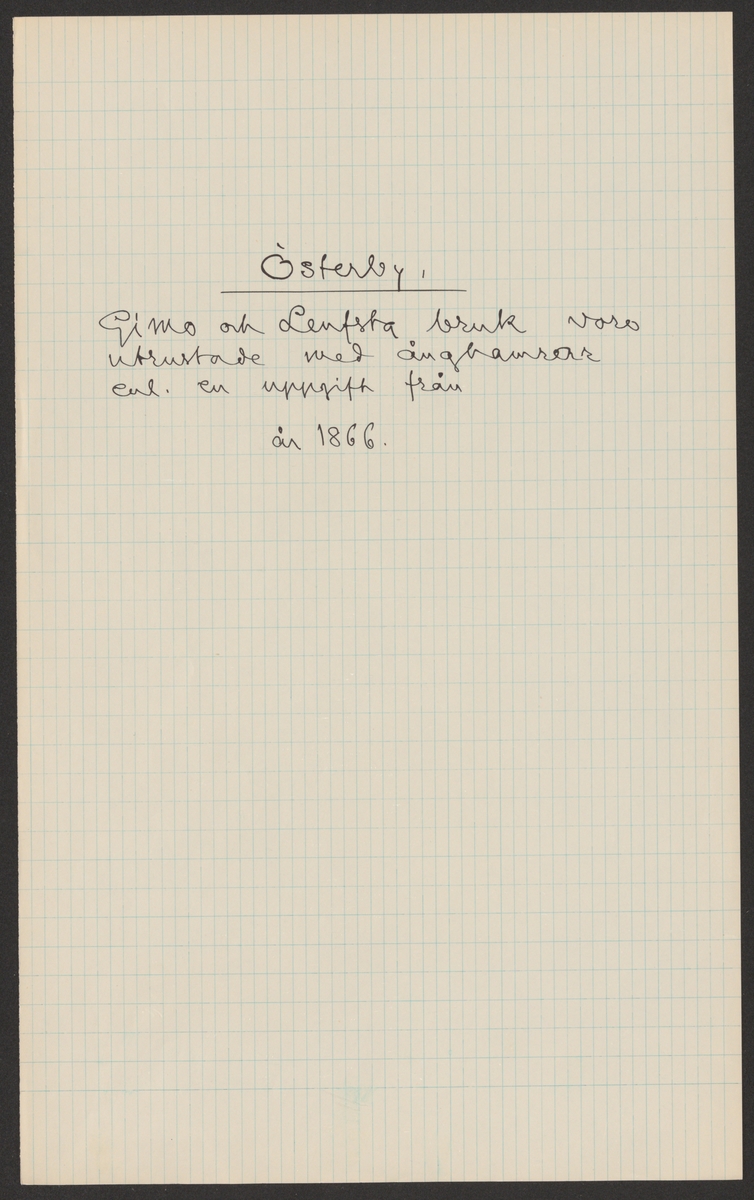 Österby,
Gimo och Leufsta bruk voro
utrustade med ånghamrar
enl. en uppgift från
år 1866.